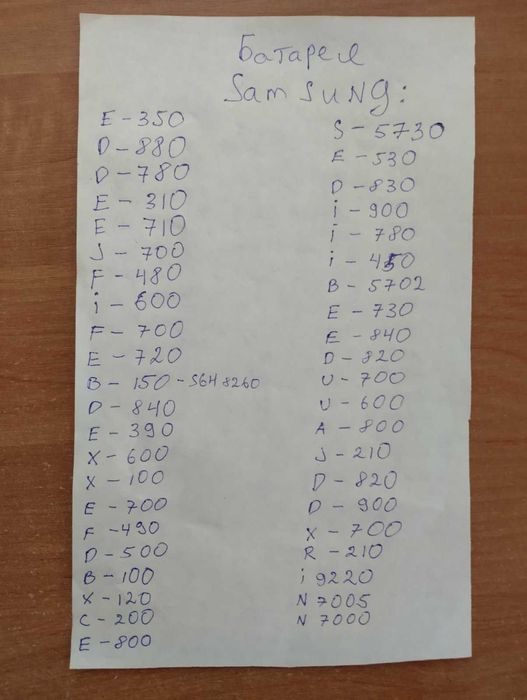 Батарея
SAMSUNG:
E-350
D-880
D-780
E-310
E-710
J-700
F-480
i-600
F-700
E-720
B-150-S64 8260
D-840
E-390
X-600
X-100
E-700
F-490
D-500
B-100
X-120
C-200
E-800
S-5730
E-530
D-830
i-900
i-780
i-450
B-5702
E-730
E-840
D-820
U-700
U-600
A-800
J-210
D-820
D-900
X-700
R-210
i 9220
N 7005
N 7000